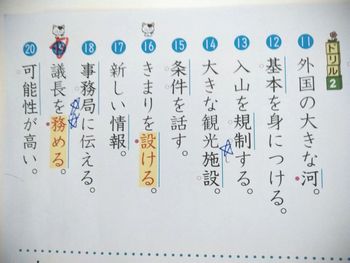 ドリル2
11 外国の大きな河。
12 基本を身につける。
13 入山を規制する。
14 大きな観光施設。
15 条件を話す。
16 きまりを設ける。
17 新しい情報。
18 事務局に伝える。
19 議長を務める。
20 可能性が高い。